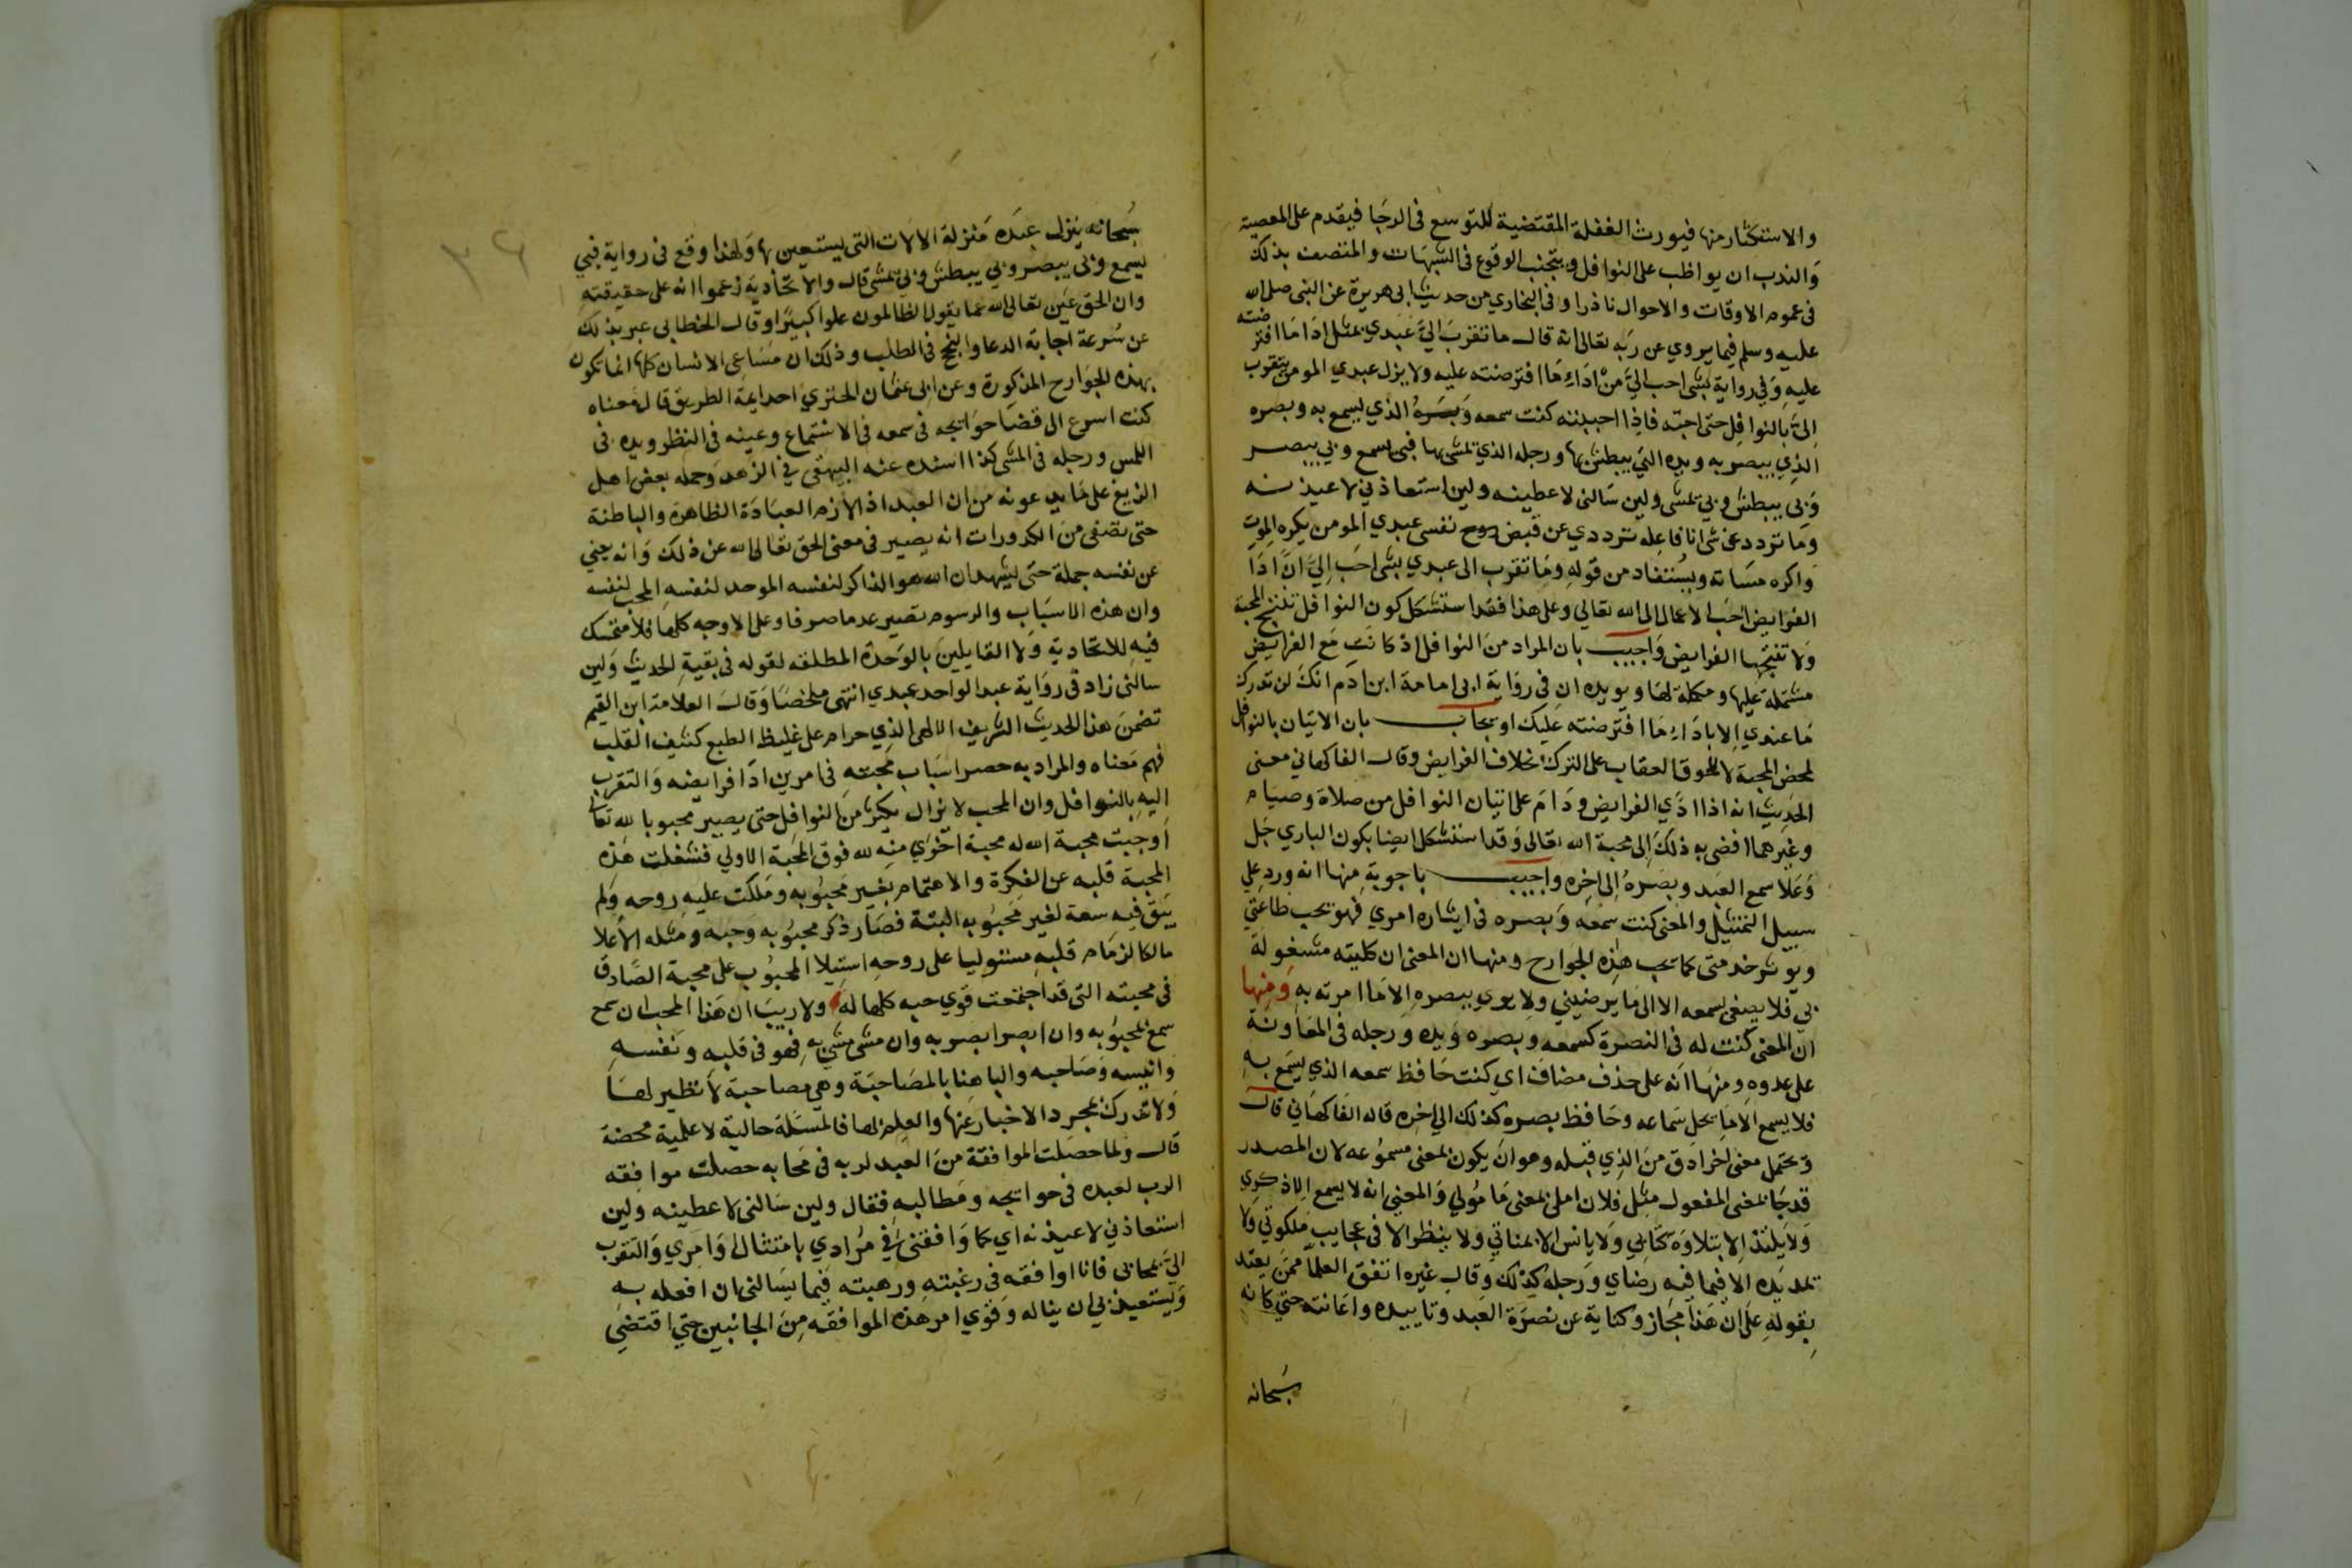 والاستكثار منها فيورث الغفلة المقتضية للتوسع في الرجا فيقدم على المعصية
والندب ان يواظب على النوافل ويتجنب الوقوع في الشبهات والمتصف بذلك
في عموم الاوقات والاحوال نادرا وفي البخاري من حديث ابي هريرة عن النبي صلى الله
عليه وسلم فيما يروي عن ربه تعالى انه قال ما تقرب الي عبدي بمثل اداء ما افترضته
عليه وفي رواية بشي احب الي من اداء ما افترضته عليه ولا يزل عبدي المومن يتقرب
الي بالنوافل حتى احبه فاذا احببته كنت سمعه وبصره الذي يسمع به وبصره
الذي يبصر به ويده التي يبطش بها ورجله الذي تمشي بها فبي يسمع وبي يبصر
وبي يبطش وبي تمشي ولين سالني لاعطينه ولين استعاذ بي لاعيذنه
وما تردد عن شي انا فاعله ترددي عن قبض روح نفس عبدي المومن يكره الموت
واكره مساته ويستفاد من قوله وما تقرب الى عبدي بشي احب الي ان ادا
الفرايض احب الاعمال الى الله تعالي وعلى هذا فقد استشكل كون النوافل تنتج المحبة
ولا تفتجها الفرايض واجيب بان المراد من النوافل اذ كانت مع الفرايض
مشتملة عليها ومكملة لها ويويده ان في رواية ابي امامة ابن ادم انك لن تدرك
ما عندي الا باداء ما افترضته عليك او يجاب بان الاتيان بالنوافل
لمحض المحبة لا لخوف العقاب على الترك بخلاف الفرايض وقال الفاكهاني معنى
الحديث انه اذا ادي الفرايض ودام على اتيان النوافل من صلاة وصيام
وغيرهما افضى به ذلك الى محبة الله تعالى وقد استشكل ايضا بكون الباري جل
وعلا سمع العبد وبصره الى اخره واجيب باجوبة منها انه ورد علي
سبيل التمثيل والمعنى كنت سمعه وبصره في ايثاره امري فهو يحب طاعتي
ويوثر خدمتي كما يحب هذه الجوارح ومنها ان المعنى ان كليته مشغولة
بي فلا يصغى بسمعه الا الى ما يرضيني ولا يري ببصره الا ما امرته به ومنها
ان المعنى كنت له في النصرة كسمعه وبصره ويده ورجله في المعاونة
على عدوه ومنها انه على حذف مضاف اي كنت حافظ سمعه الذي يسمع به
فلا يسمع الا ما يحل سماعه وحافظ بصره كذلك الي اخره قاله الفاكهاني قال
ويحتمل معنى اخر ادق من الذي قبله وهو ان يكون بمعنى مسموعه لان المصدر
قد جا بمعنى المفعول مثل فلان املي بمعنى مامولي والمعنى انه لا يسمع الا ذكري
ولا يلتذ الا بتلاوة كتابي ولا يانس الا بمناتي ولا ينظر الا في عجايب ملكوتي ولا
تمد يده الا فيما فيه رضاي ورجله كذلك وقال غيره اتفق العلما ممن يعتد
بقوله على ان هذا مجاز وكناية عن نصرة العبد وتاييده واعانته حتى كانه
سبحانه
٣٦
سبحانه ينزل عبده منزلة الالات التي يستعين بها ولهذا وقع في رواية فبي
يسمع وبي يبصر وبي يبطش وبي تمشي قال والاتحادية زعموا انه على حقيقته
وان الحق عين تعالى الله عما يقول الظالمون علوا كبيرا وقال الخطابي عبر بذلك
عن سرعة اجابة الدعا والنجح في الطلب وذلك ان مساعي الانسان كلها انما تكون
بهذه الجوارح المذكورة وعن ابي عثمان الحنزي احد ايمة الطريق قال معناه
كنت اسرع الى قضا حوايجه في سمعه في الاستماع وعينه في النظر ويده في
اللمس ورجله في المشي كذا اسنده عنه البيهقي في الزهد وحمله بعض اهل
الزيغ على ما يدعونه من ان العبد اذا لازم العبادة الظاهرة والباطنة
حتى تصفى من الكدورات انه يصير في معنى الحق تعالى الله عن ذلك وانه يفني
عن نفسه جملة حتى يشهد ان الله هو الذاكر لنفسه الموحد لنفسه المحب لنفسه
وان هذه الاسباب والرسوم تصير عدما صرفا وعلى الاوجه كلها فلا متمسك
فيه للاتحادية ولا القايلين بالوحدة المطلقه لقوله في بقية الحديث ولين
سالني زاد في رواية عبد الواحد عبدي انتهى ملخصا وقال العلامة ابن القيم
تضمن هذا الحديث الشريف الالهي الذي حرام على غليظ الطبع كثيف القلب
فهم معناه والمراد به حصر اسباب محبته في امرين ادا فرايضه والتقرب
اليه بالنوافل وان المحب لا يزال يكثر من النوافل حتى يصير محبوبا لله تعالى
اوجبت محبة الله له محبة اخري منه لله فوق المحبة الاولي فشغلت هذه
المحبة قلبه عن الفكرة والاهتمام بغير محبوبه وملكت عليه روحه ولم
يبق فيه سعة لغير محبوبه البتة فصار ذكر محبوبه وحبه ومثله الاعلا
مالكا لزمام قلبه مستوليا على روحه استيلا المحبوب على محبة الصادق
في محبته التي قد اجتمعت قوي حبه كلها له ولا ريب ان هذا المحب ان سمع
سمع بمحبوبه وان ابصر ابصر به وان مشى مشي به فهو في قلبه ونفسه
وانيسه وصاحبه والبا هنا بالمصاحبة وهي مصاحبة لا نظير لها
ولا تدرك بمجرد الاخبار عنها والعلم بها فالمسئلة حالية لا علمية محضة
قال ولما حصلت الموافقة من العبد لربه في محابه حصلت موافقه
الرب لعبده في حوايجه ومطالبه فقال ولين سالني لاعطينه ولين
استعاذني لاعيذنه اي كما وافقني في مرادي بامتثال اوامري والتقرب
الي بمحابي فانا اوافقه في رغبته ورهبته فيما يسالني ان افعله به
ويستعيذ بي ان يناله وقوي امر هذه الموافقه من الجانبين حتى اقتضى